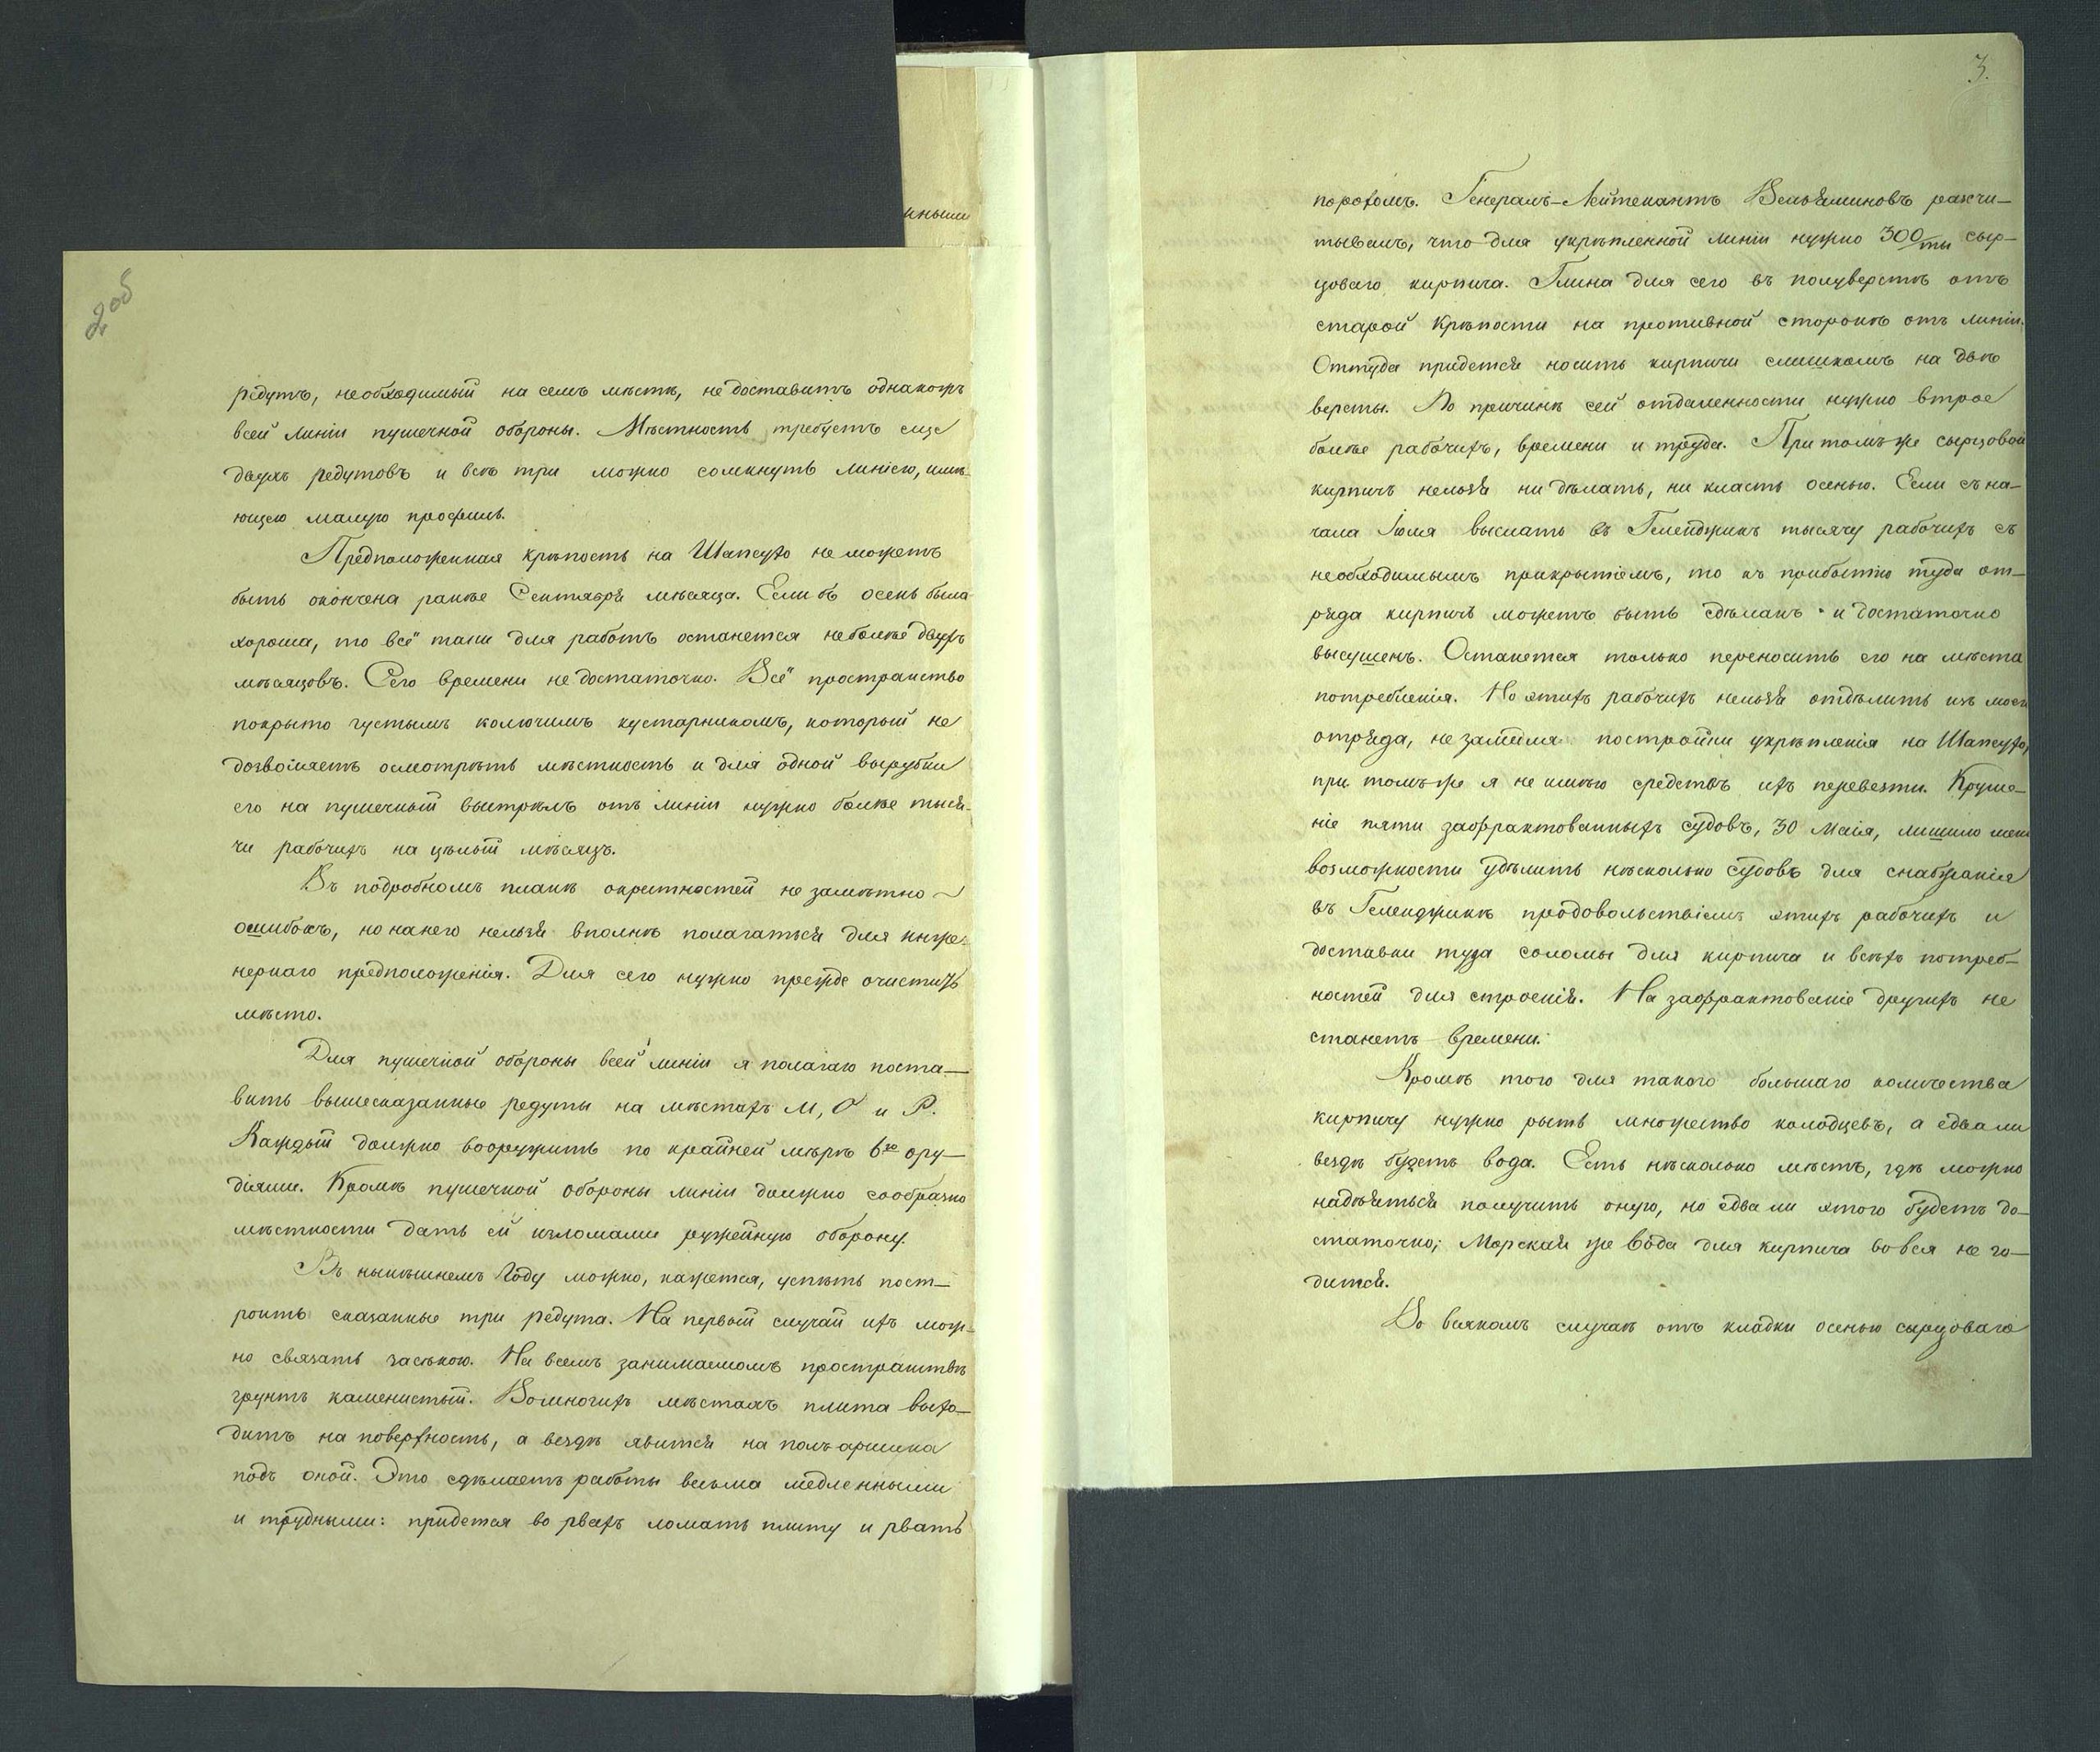 2об
редутъ, необходимый на семъ мѣстѣ, не доставитъ однакожъ
всей линіи пушечной обороны. Мѣстность требуетъ еще
двухъ редутовъ и всѣ три можно сомкнуть линіею, имѣ-
ющею малую профиль.
Предположенная крѣпость на Шапсухо не можетъ
быть окончена ранѣе Сентября мѣсяца. Если бъ осень была
хороша, то всё таки для работъ останется неболѣе двухъ
мѣсяцовъ. Сего времени не достаточно. Всё пространство
покрыто густымъ колючимъ кустарникомъ, который не
дозволяетъ осмотрѣть мѣстность и для одной вырубки
его на пушечный выстрѣлъ отъ линіи нужно болѣе тыся-
чи рабочихъ на цѣлый мѣсяцъ.
Въ подробномъ планѣ окрестностей не замѣтно
ошибокъ, но на него нельзя вполнѣ полагаться для инже-
нернаго предположенія. Для сего нужно прежде очистить
мѣсто.
Для пушечной обороны всей линіи я полагаю поста-
вить вышесказанные редуты на мѣстахъ М, О и Р.
Каждый должно вооружить по крайней мѣрѣ 6ю ору-
діями. Кромѣ пушечной обороны линіи должно сообразно
мѣстности дать ей изломами ружейную оборону.
Въ нынѣшнемъ году можно, кажется, успѣть пост-
роить сказанные три редута. На первый случай ихъ мож-
но связать засѣкою. На всемъ занимаемомъ пространствѣ
грунтъ каменистый. Во многихъ мѣстахъ плита выхо-
дитъ на поверхность, а вездѣ явится на полъ аршина
подъ оной. Это сдѣлаетъ работы весьма медленными
и трудными: придется во рвахъ ломать плиту и рвать
ными
3.
порохомъ. Генералъ-Лейтенантъ Вельяминовъ разчи-
тывалъ, что для укрѣпленной линіи нужно 300/ты сыр-
цоваго кирпича. Глина для сего въ полуверстѣ отъ
старой крѣпости на противной сторонѣ отъ линіи.
Оттуда придется носить кирпичи слишкомъ на двѣ
версты. По причинѣ сей отдаленности нужно втрое
болѣе рабочихъ, времени и труда. При томъ же сырцовой
кирпичъ нельзя ни дѣлать, ни класть осенью. Если съ на-
чала Іюля выслать въ Геленджикъ тысячу рабочихъ съ
необходимымъ прикрытіемъ, то къ прибытію туда от-
ряда кирпичъ можетъ быть сдѣланъ и достаточно
высушенъ. Останется только переносить его на мѣста
потребленія. Но этихъ рабочихъ нельзя отдѣлить изъ моего
отряда, не замедля постройки укрѣпленія на Шапсухо,
при томъ же я не имѣю средствъ ихъ перевезти. Круше-
ніе пяти зафрахтованныхъ судовъ, 30 Маія, лишило меня
возможности удѣлить нѣсколько судовъ для снабженія
въ Геленджикѣ продовольствіемъ этихъ рабочихъ и
доставки туда соломы для кирпича и всѣхъ потреб-
ностей для строенія. На зафрахтованіе другихъ не
станетъ времени.
Кромѣ того для такого большаго количества
кирпичу нужно рыть множество колодцевъ, а едва ли
вездѣ будетъ вода. Есть нѣсколько мѣстъ, гдѣ можно
надѣяться получить оную, но едва ли этого будетъ до-
статочно; Морская же вода для кирпича вовся не го-
дится.
Во всякомъ случаѣ отъ кладки осенью сырцоваго